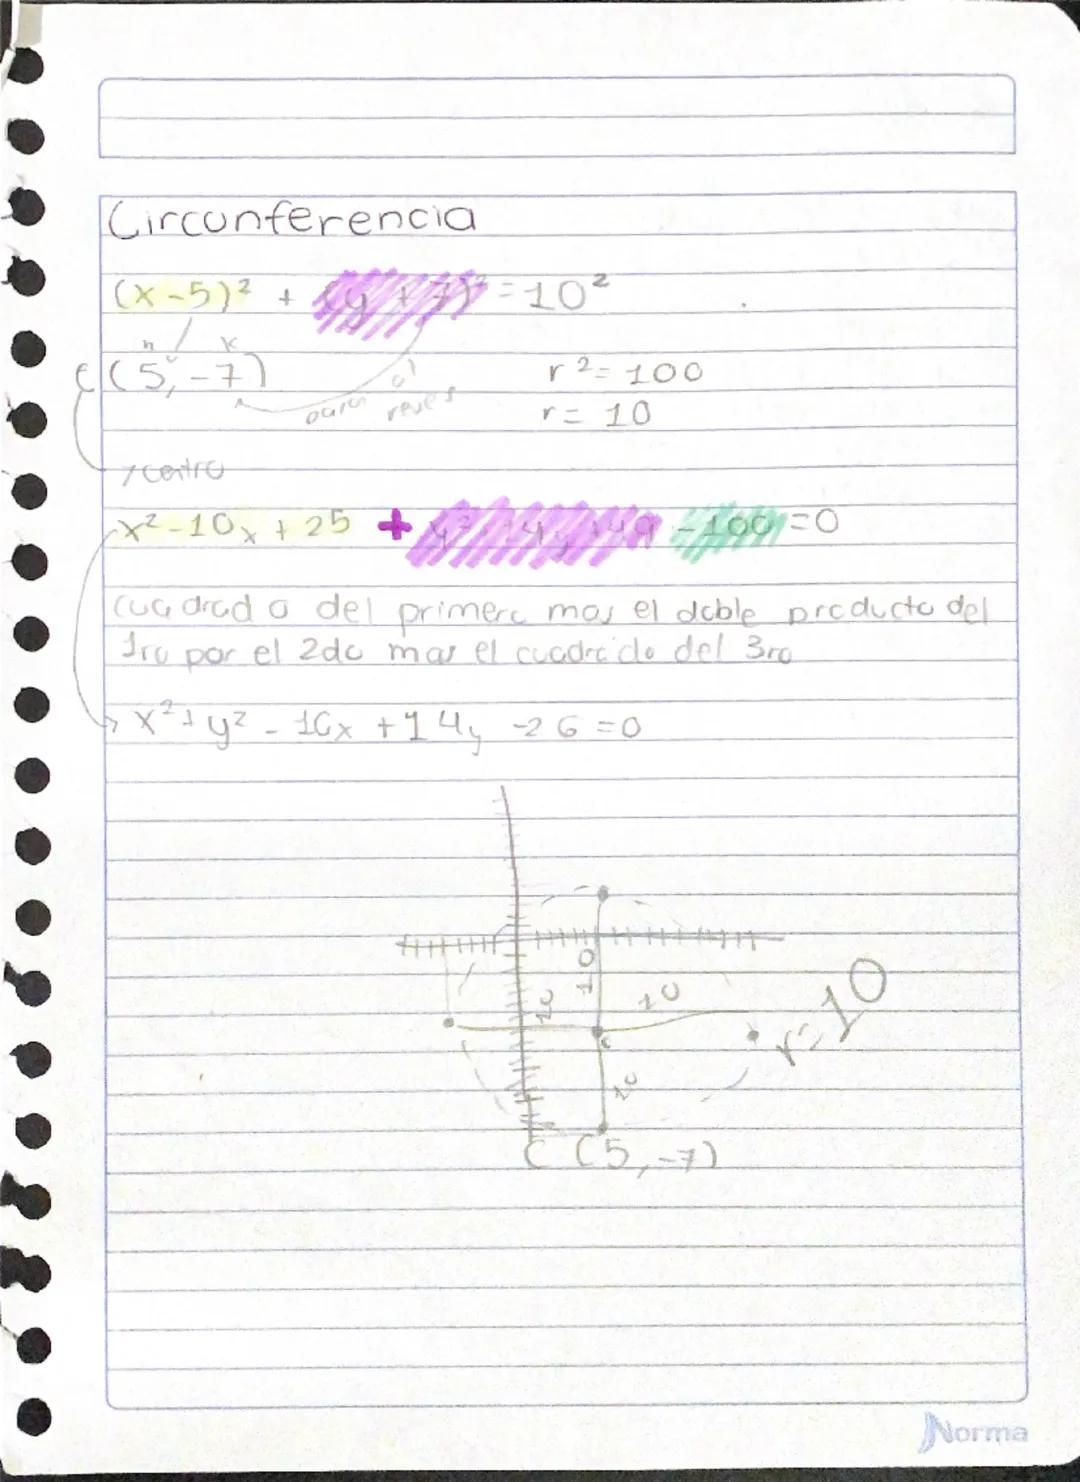 Circunferencia
(x-5)² + (y + 7)² = 10²
h k
C (5, -7) r² = 100
al
reves r = 10
centro
x² - 10x + 25 + y² + 14y + 49 - 100 = 0
cuadrado del primero mas el doble producto del
1ro por el 2do mas el cuadrado del 3ro
x² + y² - 10x + 14y - 26 = 0
10
10
10
10
c
r = 10
C (5, -7)
Norma